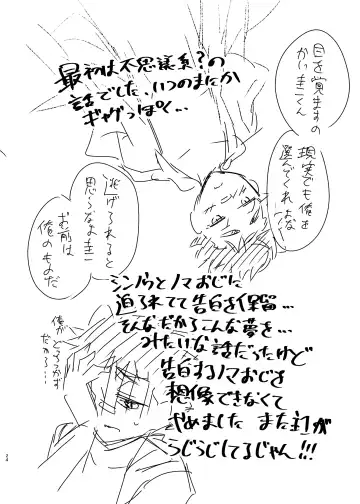 最初は不思議系?の
話でした、いつのまにか
ギャグっぽく…
目を覚ますの
かい圭くん
現実でも俺を
選んでくれよな
逃げられると
思うなよ圭
お前は
俺のものだ
シンドウとノマおじに
迫られてて告白を保留…
そんなだからこんな夢を…
みたいな話だったけど
告白するノマおじを
想像できなくて
やめました また圭が
うじうじしてるじゃん!!!
俺が
だから…